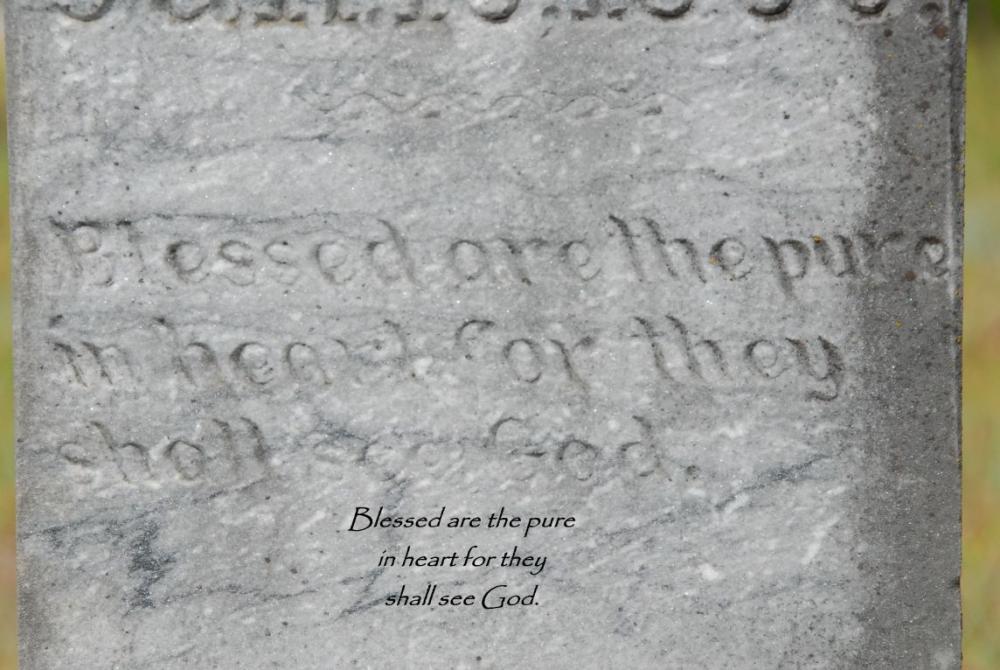 Blessed are the pure
in heart for they
shall see God.
Blessed are the pure
in heart for they
shall see God.